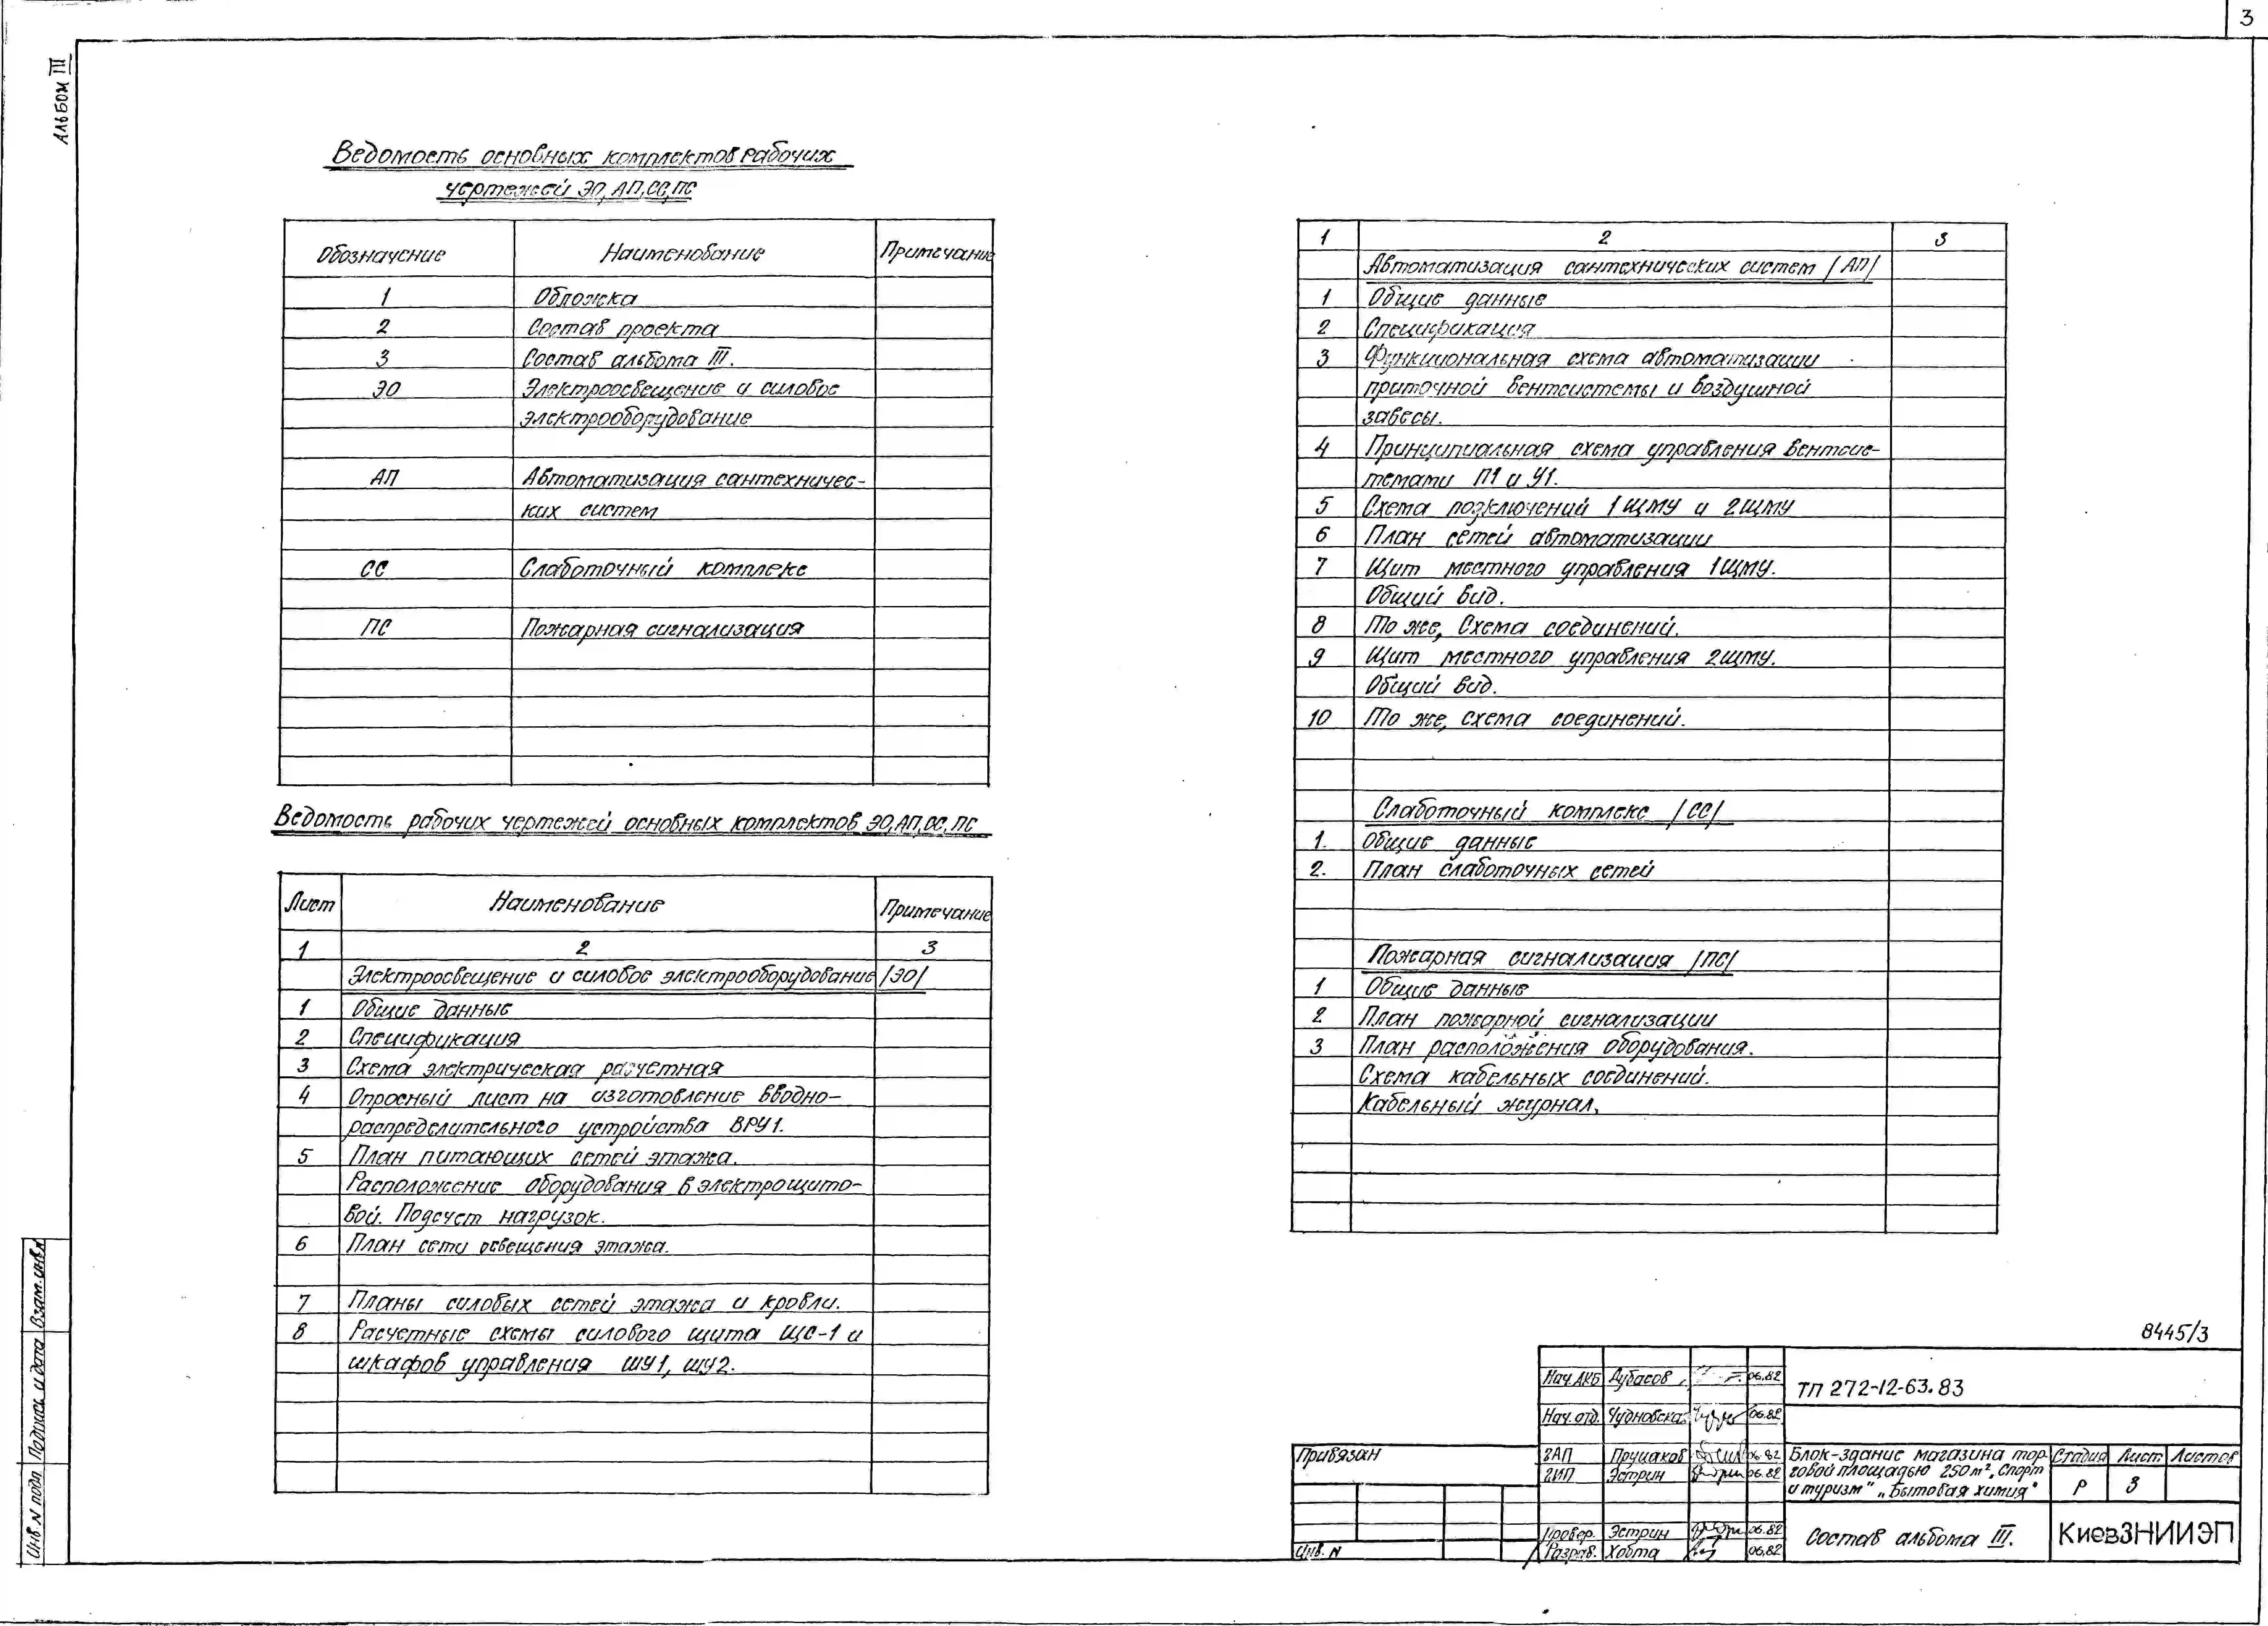 3
Альбом III
Ведомость основных комплектов рабочих
чертежей ЭО, АП, СС, ПС
Обозначение Наименование Примечание
1 Обложка
2 Состав проекта
3 Состав альбома III.
ЭО Электроосвещение и силовое
электрооборудование
АП Автоматизация сантехничес-
ких систем
СС Слаботочный комплекс
ПС Пожарная сигнализация
Ведомость рабочих чертежей основных комплектов ЭО, АП, СС, ПС
Лист Наименование Примечание
1 2 3
Электроосвещение и силовое электрооборудование /ЭО/
1 Общие данные
2 Спецификация
3 Схема электрическая расчетная
4 Опросный лист на изготовление вводно-
распределительного устройства ВРУ1.
5 План питающих сетей этажа.
Расположение оборудования в электрощито-
вой. Подсчет нагрузок.
6 План сети освещения этажа.
7 Планы силовых сетей этажа и кровли.
8 Расчетные схемы силового щита ЩС-1 и
шкафов управления ШУ1, ШУ2.
1 2 3
Автоматизация сантехнических систем /АП/
1 Общие данные
2 Спецификация
3 Функциональная схема автоматизации
приточной вентсистемы и воздушной
завесы.
4 Принципиальная схема управления вентсис-
темами П1 и У1.
5 Схема подключений 1ЩМУ и 2ЩМУ
6 План сетей автоматизации
7 Щит местного управления 1ЩМУ.
Общий вид.
8 То же, Схема соединений.
9 Щит местного управления 2ЩМУ.
Общий вид.
10 То же, схема соединений.
Слаботочный комплекс /СС/
1. Общие данные
2. План слаботочных сетей
Пожарная сигнализация /ПС/
1 Общие данные
2 План пожарной сигнализации
3 План расположения оборудования.
Схема кабельных соединений.
Кабельный журнал.
8445/3
Нач. АКБ Дубасов 06.82
Нач. отд. Чудновская 06.82
ГАП Прушаков 06.82
ГИП Эстрин 06.82
Провер. Эстрин 06.82
Разраб. Хобта 06.82
ТП 272-12-63.83
Блок-здание магазина тор-
говой площадью 250 м², Спорт
и туризм" „Бытовая химия"
Стадия Лист Листов
Р 3
Состав альбома III.
КиевЗНИИЭП
Привязан
Инв. N
Инв N подл Подпись и дата Взам. инв.N